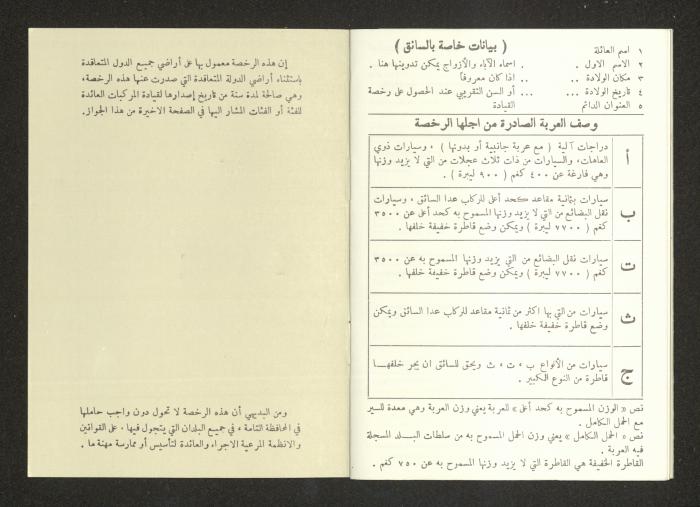 ( بيانات خاصة بالسائق )
١ اسم العائلة
٢ الاسم الاول . . اسماء الآباء والأزواج يمكن تدوينها هنا .
٣ مكان الولادة .. ... .. اذا كان معروفاً
٤ تاريخ الولادة ... ... أو السن التقريبي عند الحصول على رخصة
٥ العنوان الدائم القيادة
وصف العربة الصادرة من اجلها الرخصة
أ
دراجات آلية ( مع عربة جانبية أو بدونها ) ، وسيارات ذوي
العاهات، والسيارات من ذات ثلاث عجلات من التي لا يزيد وزنها
وهي فارغة عن ٤٠٠ كغم ( ٩٠٠ ليبرة ) .
ب
سيارات بثمانية مقاعد كحد أعلى للركاب عدا السائق ، وسيارات
نقل البضائع من التي لا يزيد وزنها المسموح به كحد أعلى عن ٣٥٠٠
كغم ( ٧٧٠٠ ليبرة ) ويمكن وضع قاطرة خفيفة خلفها .
ت
سيارات نقل البضائع من التي يزيد وزنها المسموح به عن ٣٥٠٠
كغم ( ٧٧٠٠ ليبرة ) ويمكن وضع قاطرة خفيفة خلفها .
ث
سيارات من التي بها اكثر من ثمانية مقاعد للركاب عدا السائق ويمكن
وضع قاطرة خفيفة خلفها .
ج
سيارات من الأنواع ب ، ت ، ث ويحق للسائق ان يجر خلفهـا
قاطرة من النوع الكبير .
نص « الوزن المسموح به كحد أعلى » للعربة يعني وزن العربة وهي معدة للسير
مع الحمل الكامل .
نص « الحمل الكامل » يعني وزن الحمل المسموح به من سلطات البـلـد المسجلة
فيه العربة .
القاطرة الخفيفة هي القاطرة التي لا يزيد وزنها المسموح به عن ٧٥٠ كغم .
إن هذه الرخصة معمول بها على أراضي جميع الدول المتعاقدة
باستثناء أراضي الدولة المتعاقدة التي صدرت عنها هذه الرخصة،
وهي صالحة لمدة سنة من تاريخ إصدارها لقيادة المركبات العائدة
للفئة أو الفئات المشار اليها في الصفحة الاخيرة من هذا الجواز.
ومن البديهي أن هذه الرخصة لا تحول دون واجب حاملها
في المحافظة التامة ، في جميع البلدان التي يتجول فيها ، على القوانين
والانظمة المرعية الاجراء والعائدة لتأسيس أو ممارسة مهنة ما .